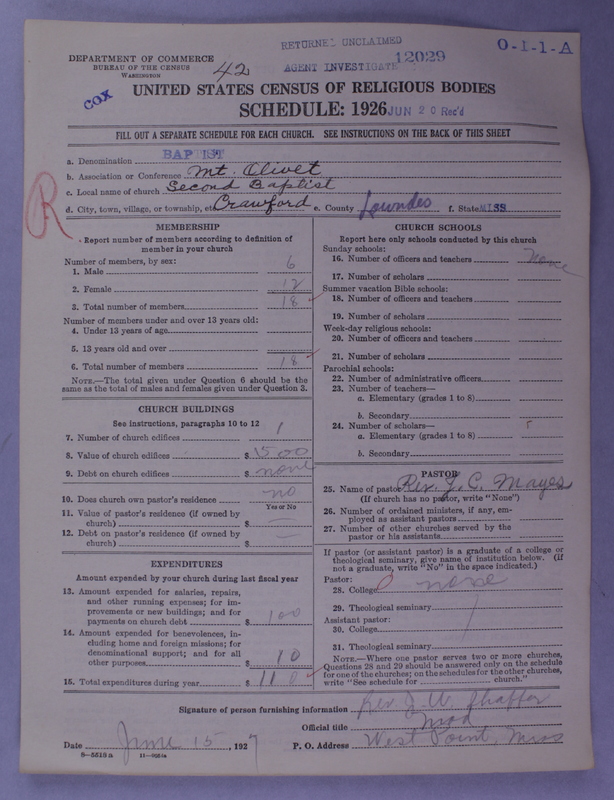 RETURNED UNCLAIMED
O-I-1-A
DEPARTMENT OF COMMERCE
BUREAU OF THE CENSUS
WASHINGTON
42
AGENT INVESTIGATE
12029
COX
UNITED STATES CENSUS OF RELIGIOUS BODIES
SCHEDULE: 1926 JUN 20 Rec'd
FILL OUT A SEPARATE SCHEDULE FOR EACH CHURCH. SEE INSTRUCTIONS ON THE BACK OF THIS SHEET
R
a. Denomination BAPTIST
b. Association or Conference Mt. Olivet
c. Local name of church Second Baptist
d. City, town, village, or township, etc. Crawford e. County Lowndes f. State MISS
MEMBERSHIP
Report number of members according to definition of
member in your church
Number of members, by sex:
1. Male 6
2. Female 12
3. Total number of members 18
Number of members under and over 13 years old:
4. Under 13 years of age
5. 13 years old and over
6. Total number of members 18
NOTE.—The total given under Question 6 should be the
same as the total of males and females given under Question 3.
CHURCH BUILDINGS
See instructions, paragraphs 10 to 12
7. Number of church edifices 1
8. Value of church edifices $1500
9. Debt on church edifices $ none
10. Does church own pastor's residence no
Yes or No
11. Value of pastor's residence (if owned by
church) $ —
12. Debt on pastor's residence (if owned by
church) $ —
EXPENDITURES
Amount expended by your church during last fiscal year
13. Amount expended for salaries, repairs,
and other running expenses; for im-
provements or new buildings; and for
payments on church debt $ 100
14. Amount expended for benevolences, in-
cluding home and foreign missions; for
denominational support; and for all
other purposes $ 10
15. Total expenditures during year $ 110
CHURCH SCHOOLS
Report here only schools conducted by this church
Sunday schools:
16. Number of officers and teachers none
17. Number of scholars
Summer vacation Bible schools:
18. Number of officers and teachers
19. Number of scholars
Week-day religious schools:
20. Number of officers and teachers
21. Number of scholars
Parochial schools:
22. Number of administrative officers
23. Number of teachers—
a. Elementary (grades 1 to 8)
b. Secondary
24. Number of scholars—
a. Elementary (grades 1 to 8)
b. Secondary
PASTOR
25. Name of pastor Rev. J. C. Mayes
(If church has no pastor, write "None")
26. Number of ordained ministers, if any, em-
ployed as assistant pastors
27. Number of other churches served by the
pastor or his assistants
If pastor (or assistant pastor) is a graduate of a college or
theological seminary, give name of institution below. (If
not a graduate, write "No" in the space indicated.)
Pastor:
28. College none
29. Theological seminary
Assistant pastor:
30. College
31. Theological seminary
NOTE.—Where one pastor serves two or more churches,
Questions 28 and 29 should be answered only on the schedule
for one of the churches; on the schedules for the other churches,
write "See schedule for church."
Signature of person furnishing information Rev. J. W. Shaffer
Official title Mod
Date June 15, 1927 P. O. Address West Point, Miss
8—5518a 11—9053a